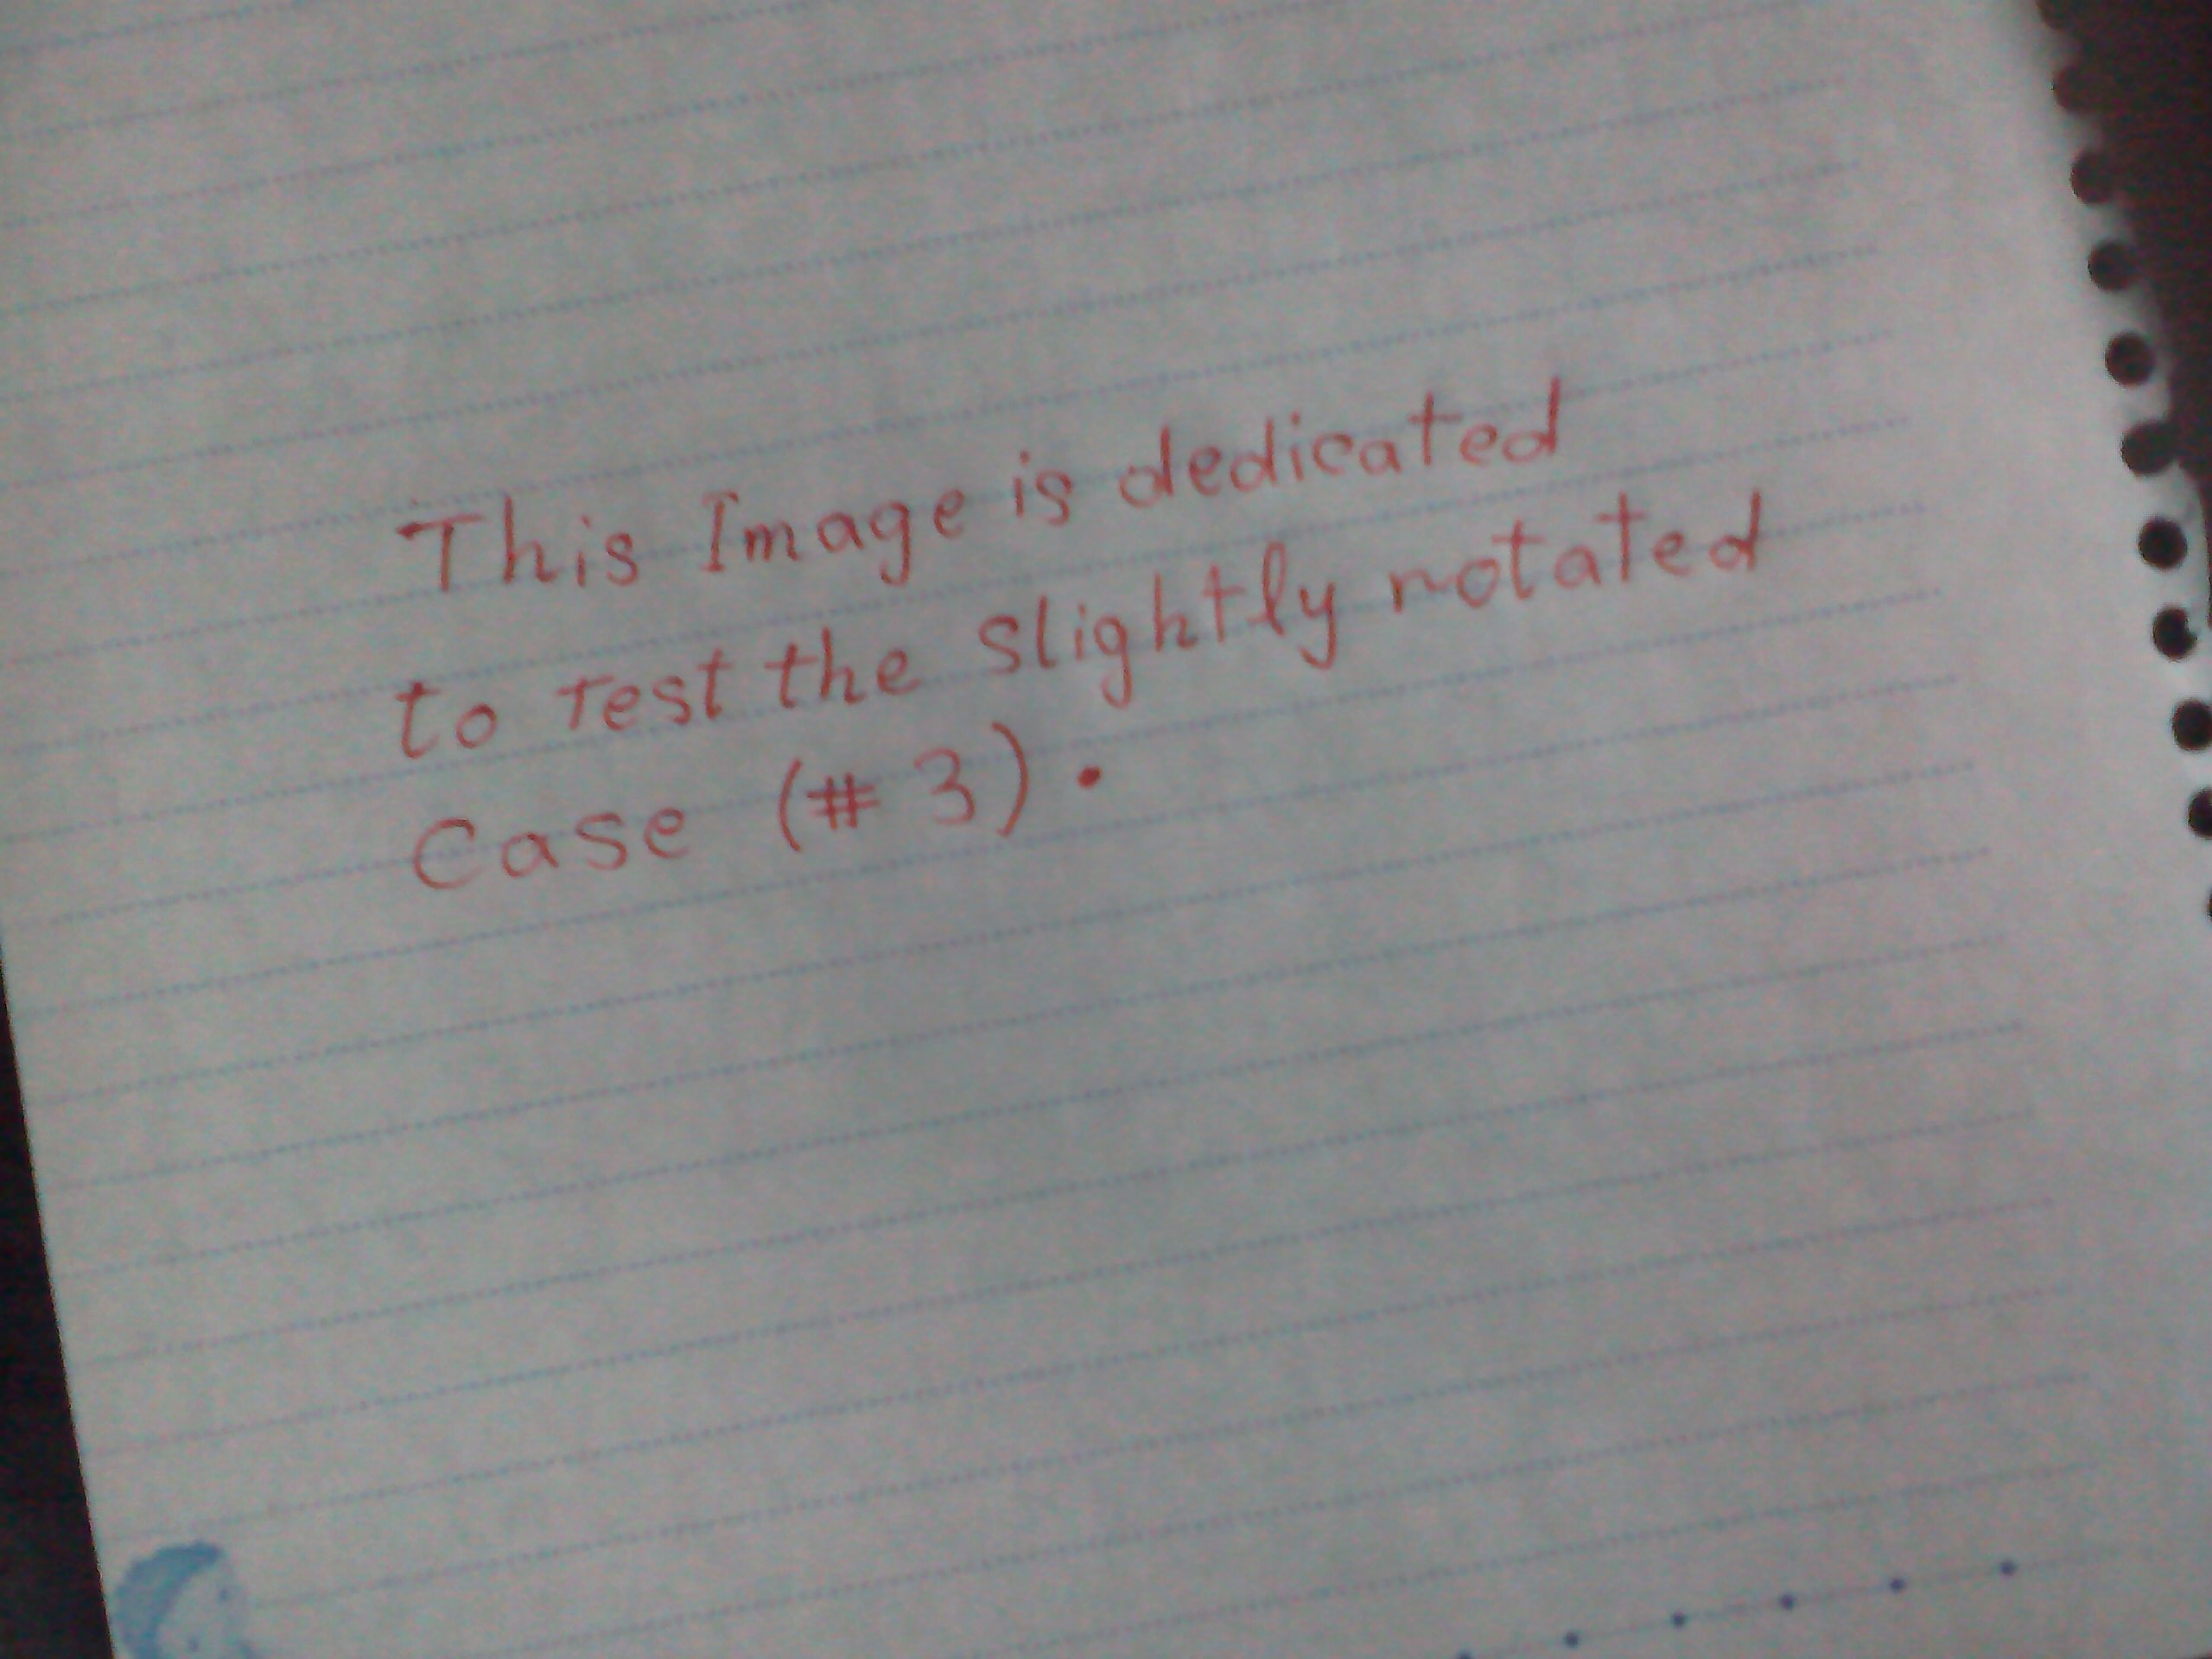 This Image is dedicated
to Test the slightly rotated
Case (# 3).